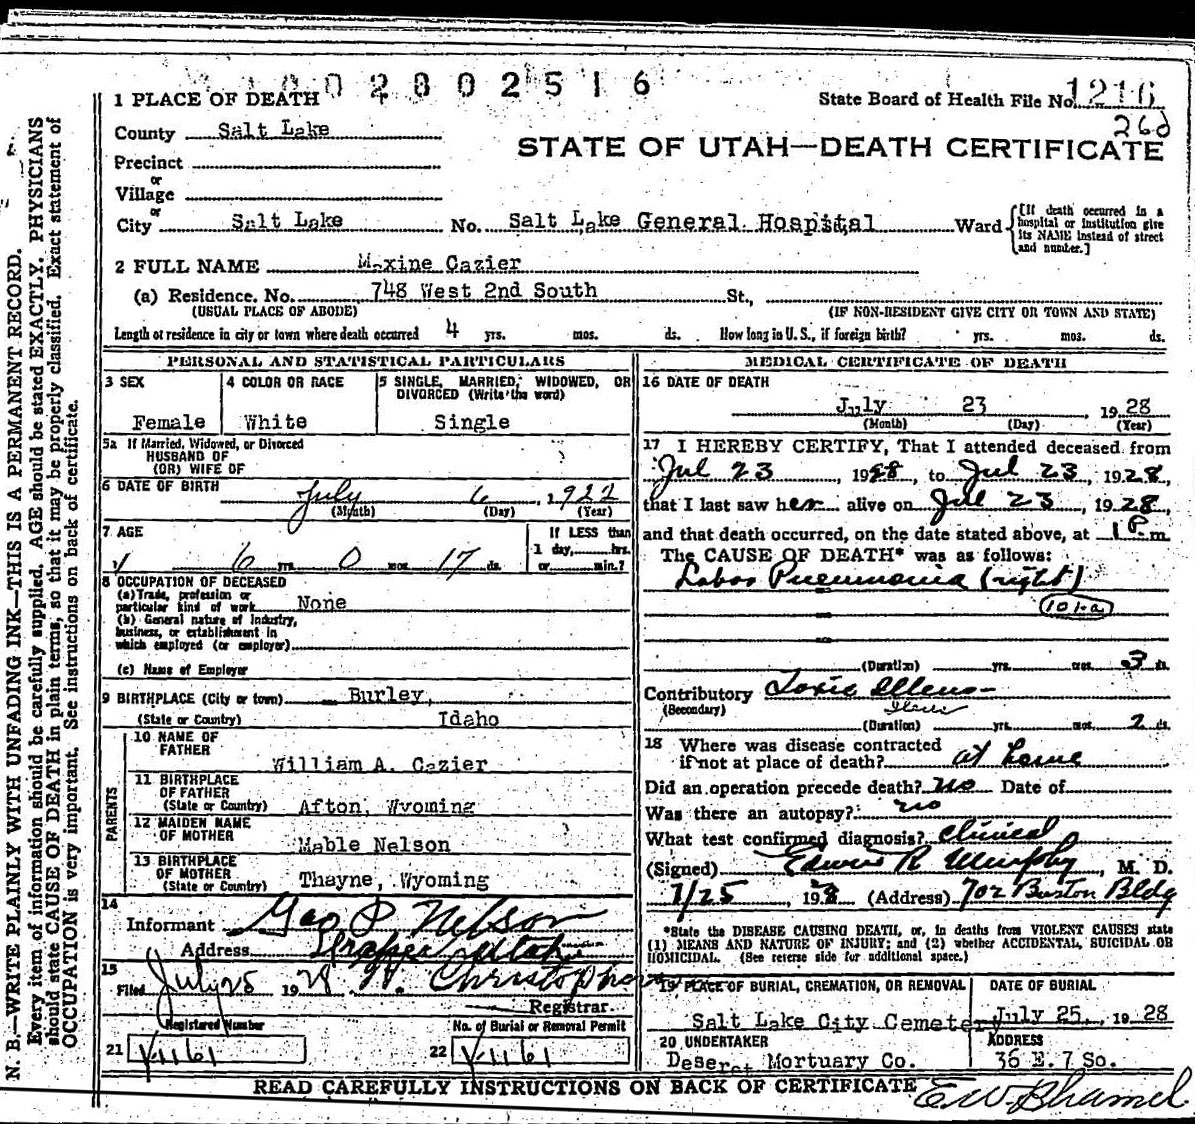 1002802516
1 PLACE OF DEATH
State Board of Health File No. 1216
26d
County Salt Lake
STATE OF UTAH—DEATH CERTIFICATE
Precinct
or
Village
or
City Salt Lake No. Salt Lake General Hospital Ward
[If death occurred in a hospital or institution give its NAME instead of street and number.]
2 FULL NAME Maxine Cazier
(a) Residence. No. 748 West 2nd South St.,
(USUAL PLACE OF ABODE) (IF NON-RESIDENT GIVE CITY OR TOWN AND STATE)
Length of residence in city or town where death occurred 4 yrs. mos. ds. How long in U. S., if foreign birth? yrs. mos. ds.
PERSONAL AND STATISTICAL PARTICULARS
3 SEX
Female
4 COLOR OR RACE
White
5 SINGLE, MARRIED, WIDOWED, OR
DIVORCED (Write the word)
Single
5a If Married, Widowed, or Divorced
HUSBAND OF
(OR) WIFE OF
6 DATE OF BIRTH July 6, 1922
(Month) (Day) (Year)
7 AGE
6 yrs. 0 mos. 17 ds.
If LESS than
1 day, hrs.
or min.?
8 OCCUPATION OF DECEASED
(a) Trade, profession or
particular kind of work None
(b) General nature of industry,
business, or establishment in
which employed (or employer)
(c) Name of Employer
9 BIRTHPLACE (City or town) Burley,
(State or Country) Idaho
PARENTS
10 NAME OF
FATHER William A. Cazier
11 BIRTHPLACE
OF FATHER
(State or Country) Afton, Wyoming
12 MAIDEN NAME
OF MOTHER Mable Nelson
13 BIRTHPLACE
OF MOTHER
(State or Country) Thayne, Wyoming
14
Informant Geo P Nelson
Address Draper Utah
15
Filed July 25 1928 W. Christopherson
Registrar.
Registered Number
21 V-1161
No. of Burial or Removal Permit
22 V-1161
MEDICAL CERTIFICATE OF DEATH
16 DATE OF DEATH
July 23, 1928
(Month) (Day) (Year)
17 I HEREBY CERTIFY, That I attended deceased from
Jul 23, 1928, to Jul 23, 1928,
that I last saw her alive on Jul 23, 1928,
and that death occurred, on the date stated above, at 1 P.m
The CAUSE OF DEATH* was as follows:
Lobar Pneumonia (right)
101-a
(Duration) yrs. mos. 3 ds.
Contributory Toxic
(Secondary)
(Duration) yrs. mos. 2 ds.
18 Where was disease contracted
if not at place of death? at home
Did an operation precede death? no Date of
Was there an autopsy? no
What test confirmed diagnosis? clinical
(Signed) Edwin R Murphy, M. D.
7/25, 1928 (Address) 702 Boston Bldg
*State the DISEASE CAUSING DEATH, or, in deaths from VIOLENT CAUSES state
(1) MEANS AND NATURE OF INJURY; and (2) whether ACCIDENTAL, SUICIDAL OR
HOMICIDAL. (See reverse side for additional space.)
19 PLACE OF BURIAL, CREMATION, OR REMOVAL
Salt Lake City Cemetery
DATE OF BURIAL
July 25, 1928
20 UNDERTAKER
Deseret Mortuary Co.
ADDRESS
36 E. 7 So.
READ CAREFULLY INSTRUCTIONS ON BACK OF CERTIFICATE
N. B.—WRITE PLAINLY WITH UNFADING INK—THIS IS A PERMANENT RECORD.
Every item of information should be carefully supplied. AGE should be stated EXACTLY. PHYSICIANS
should state CAUSE OF DEATH in plain terms, so that it may be properly classified. Exact statement of
OCCUPATION is very important. See instructions on back of certificate.